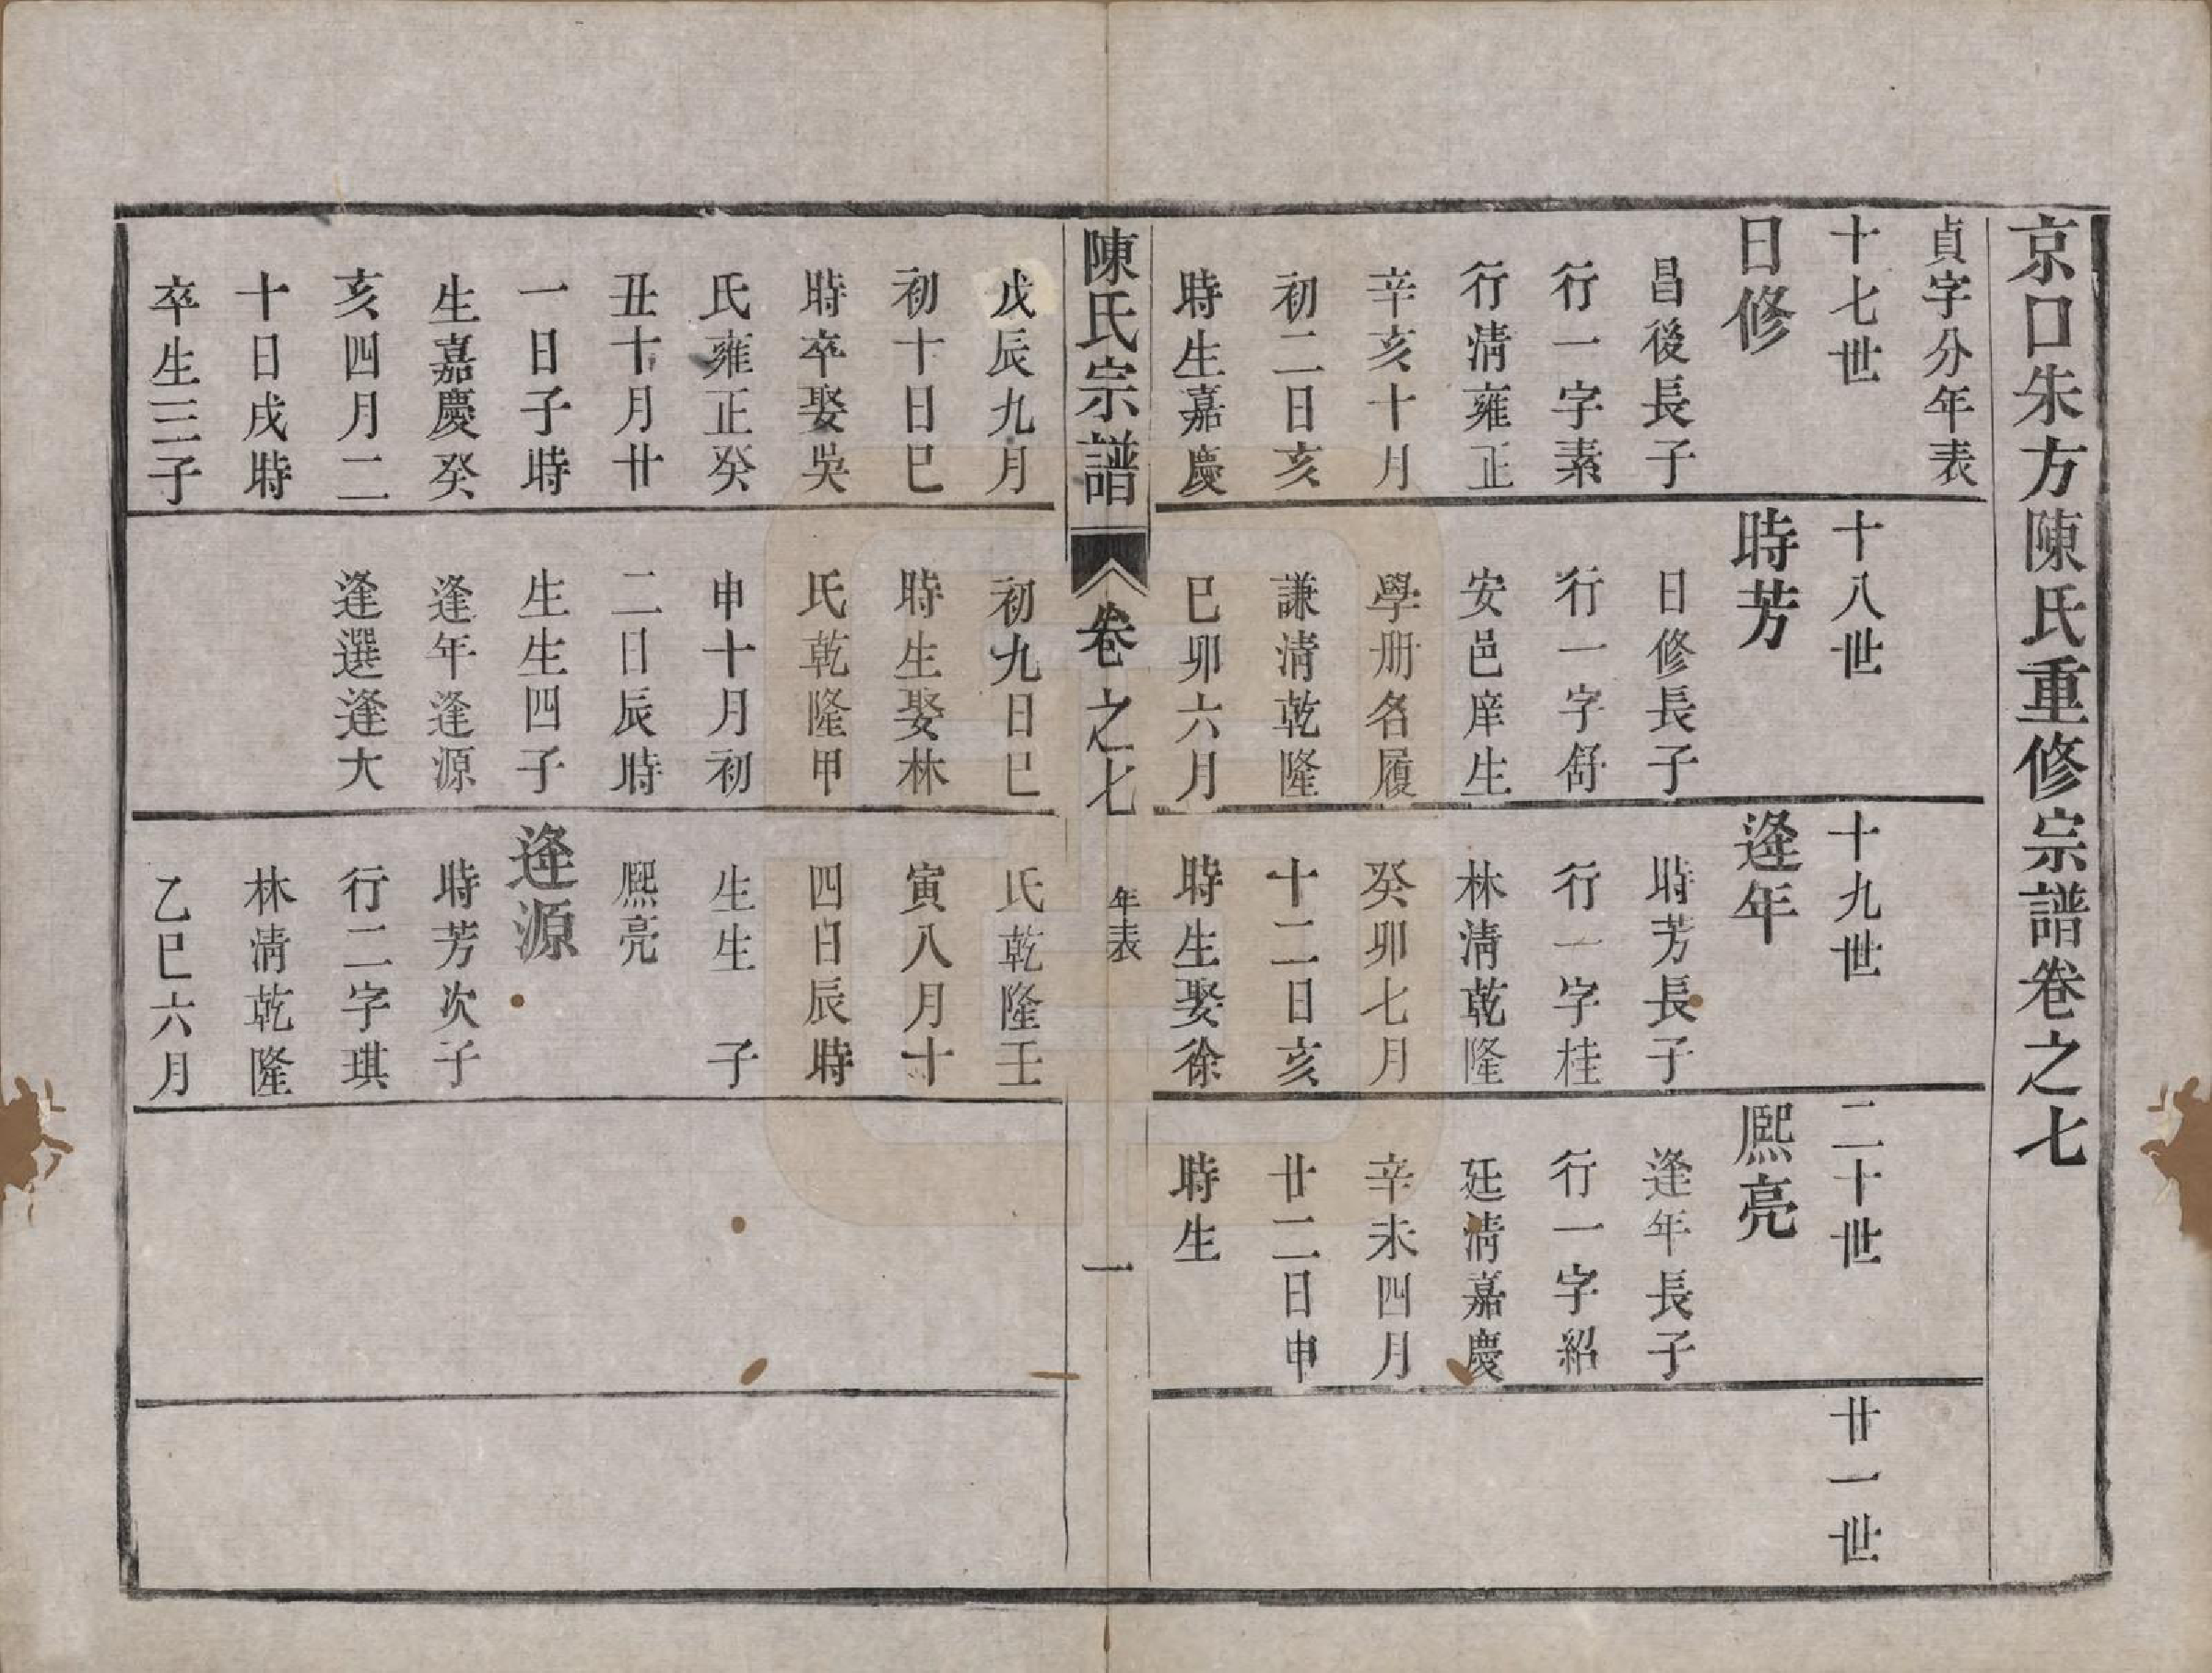 京口朱方陳氏重修宗譜卷之七
貞字分年表
十七世
日修
昌後長子
行一字素
行清雍正
辛亥十月
初二日亥
時生嘉慶
戊辰九月
初十日巳
時卒娶吳
氏雍正癸
丑十月廿
一日子時
生嘉慶癸
亥四月二
十日戌時
卒生三子
十八世
時芳
日修長子
行一字舒
安邑庠生
學册名履
謙清乾隆
巳卯六月
初九日巳
時生娶林
氏乾隆甲
申十月初
二日辰時
生生四子
逢年逢源
逢選逢大
十九世
逢年
時芳長子
行一字桂
林清乾隆
癸卯七月
十二日亥
時生娶徐
氏乾隆壬
寅八月十
四日辰時
生生 子
熙亮
逢源
時芳次子
行二字琪
林清乾隆
乙巳六月
二十世
熙亮
逢年長子
行一字紹
廷清嘉慶
辛未四月
廿二日申
時生
廿一世
陳氏宗譜
卷之七
年表
一